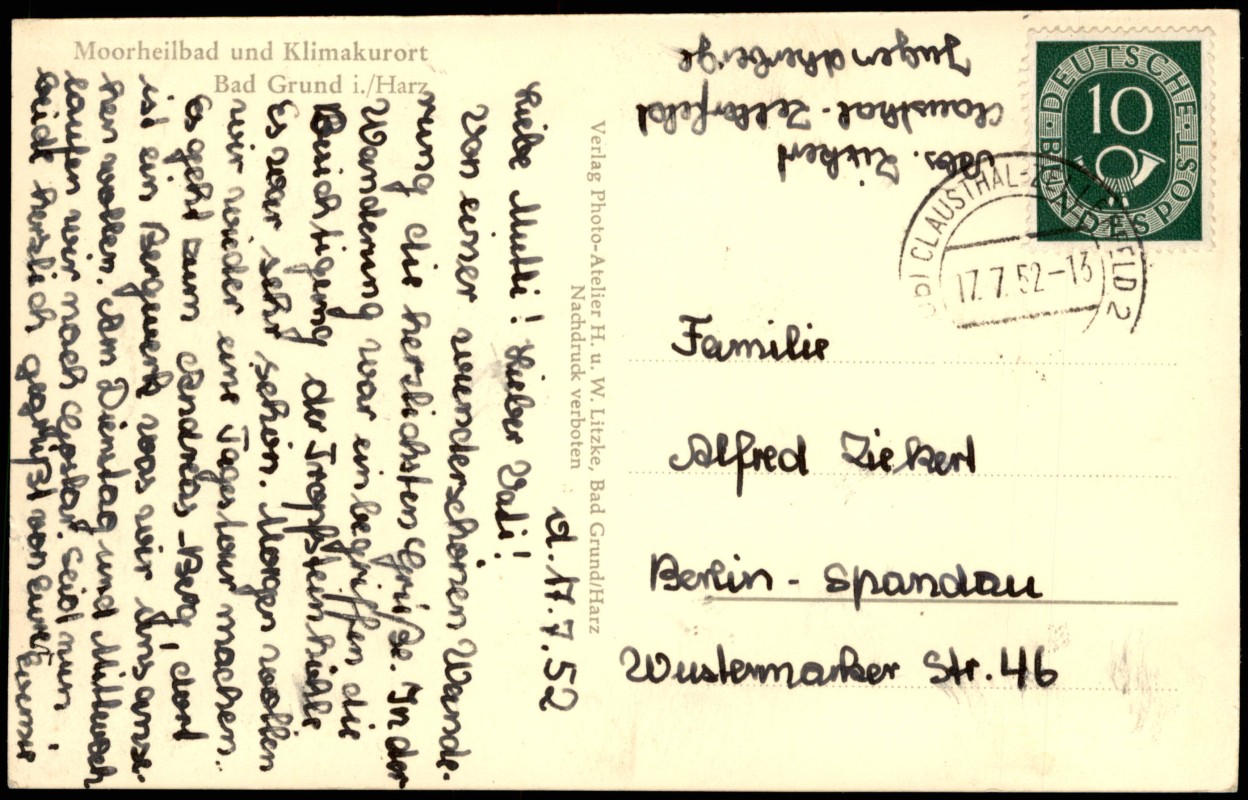 Moorheilbad und Klimakurort
Bad Grund i./Harz
d. 17.7.52
Liebe Mutti! Lieber Vati!
Von einer wunderschönen Wande-
rung die herzlichsten Grüße. In der
Wanderung war ein begriffen die
Besichtigung der Tropfsteinhöhle
Es war sehr schön. Morgen wollen
wir wieder eine Tagestour machen.
Es geht zum Andreas-Berg, dort
ist ein Bergwerk was wir uns anse-
hen wollen. Am Dienstag und Mittwoch
laufen wir nach Goslar. Seid nun
beide herzlich gegrüßt von Eurer
Verlag Photo-Atelier H. u. W. Litzke, Bad Grund/Harz
Nachdruck verboten
Abs. Ziekert
Clausthal-Zellerfeld
Jugendherberge
DEUTSCHE BUNDESPOST
10
CLAUSTHAL-ZELLERFELD 2
17.7.52-13
Familie
Alfred Ziekert
Berlin - Spandau
Wustermarker Str. 46